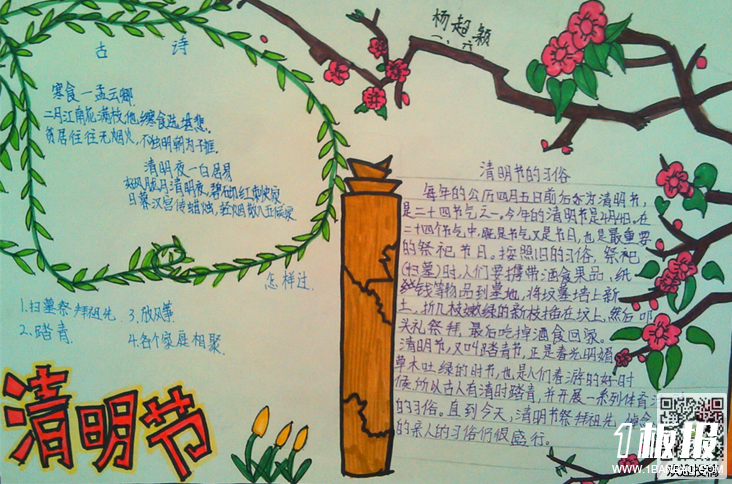 古 诗
寒食一孟云卿
二月江南花满枝,他
贫居往往无烟火,不独明朝为子推
清明夜一白居易
好风胧月清明夜,碧砌红轩
日暮汉宫传蜡烛,轻烟散入五侯家
怎样过
1.扫墓祭拜祖先 3.放风筝
2.踏青 4.各个家庭相聚
清明节
杨超颖
二、六
清明节的习俗
每年的公历四月五日前后为清明节,
是二十四节气之一。今年的清明节是4月4日。在
二十四个节气中,既是节气又是节日,也是最重要
的祭祀节日。按照旧的习俗,祭祀
(扫墓)时,人们要携带酒食果品、纸
钱等物品到墓地,将坟墓培上新
土,折几枝嫩绿的新枝插在坟上,然后叩
头礼祭拜,最后吃掉酒食回家。
清明节,又叫踏青节,正是春光明媚
草木吐绿的时节,也是人们春游的好时
候,所以古人有清明踏青,并开展一系列体育活
的习俗。直到今天,清明节祭拜祖先,悼念
的亲人的习俗仍很盛行。
1板报
WWW.1BANBAO.COM